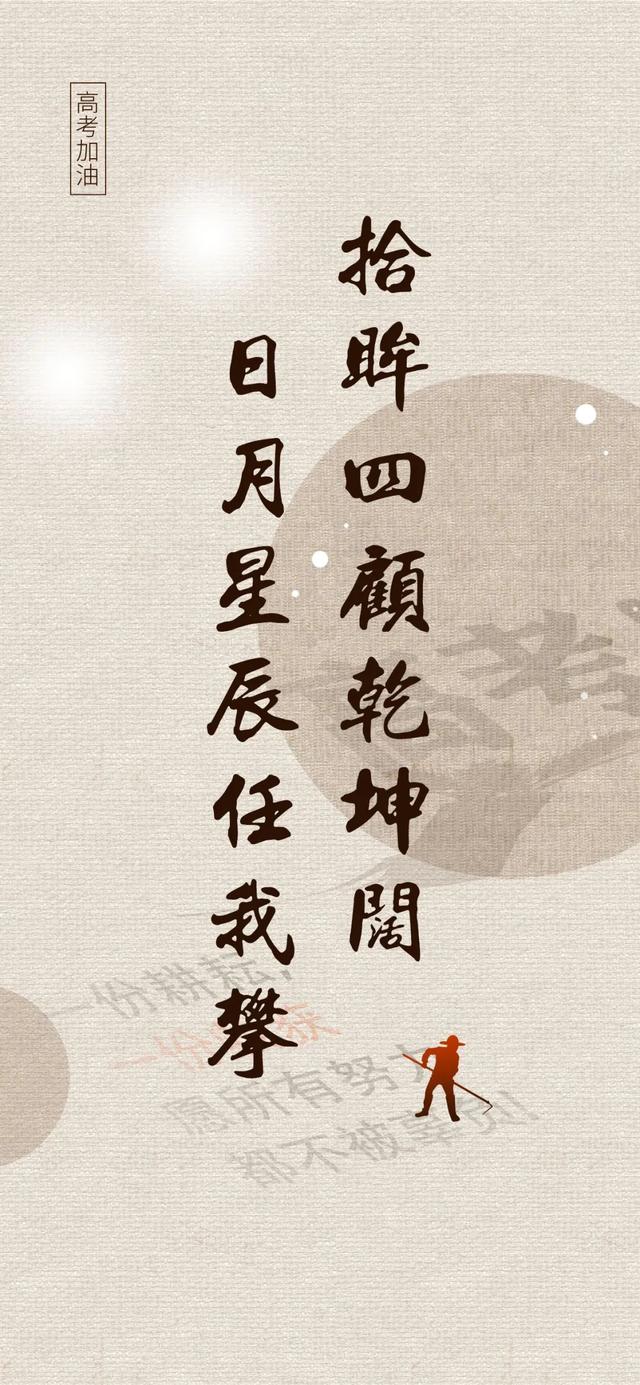 高考加油
拾眸四顧乾坤闊
日月星辰任我攀
一份耕耘，
一份
愿所有努力
都不被辜负!